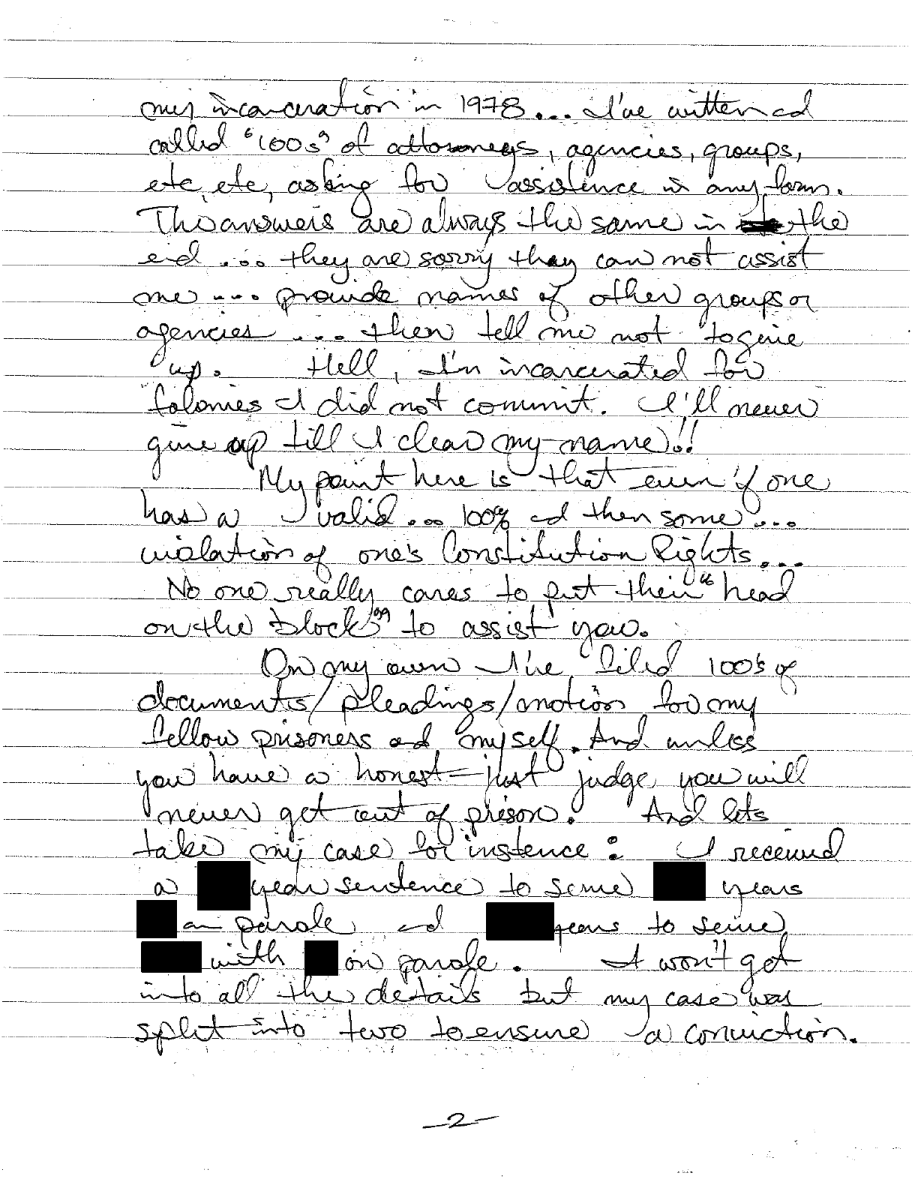 my incarceration in 1978... I've written ad
called "100s" of attorneys, agencies, groups,
etc, etc, asking for assistence in any form.
The answers are always the same in the
end ... they are sorry they can not assist
me ... provide names of other groups or
agencies ... then tell me not to give
up. Hell, I'm incarcerated for
falonies I did not commit. I'll never
give up till I clear my name!!
My point here is that even if one
has a valid ... 100% ad then some ...
violation of one's Constitution Rights ...
No one really cares to put their "head
on the block" to assist you.
On my own I've filed 100's of
documents/pleadings/motion for my
fellow prisoners ad myself. And unless
you have a honest-just judge, you will
never get out of prison. And lets
take my case for instence: I received
a year sentence to serve years
on parole ad years to serve
with on parole. I won't get
into all the details but my case was
split into two to ensure a conviction.
-2-